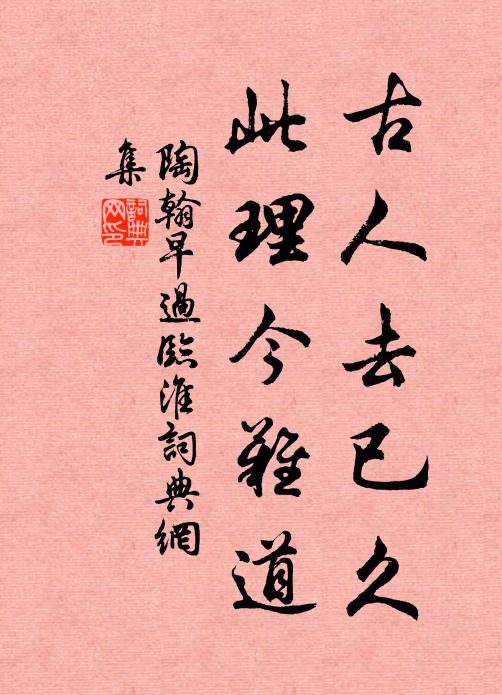 古人去已久
此理今難道
陶翰早過臨淮詞典網
集
詞典
网印